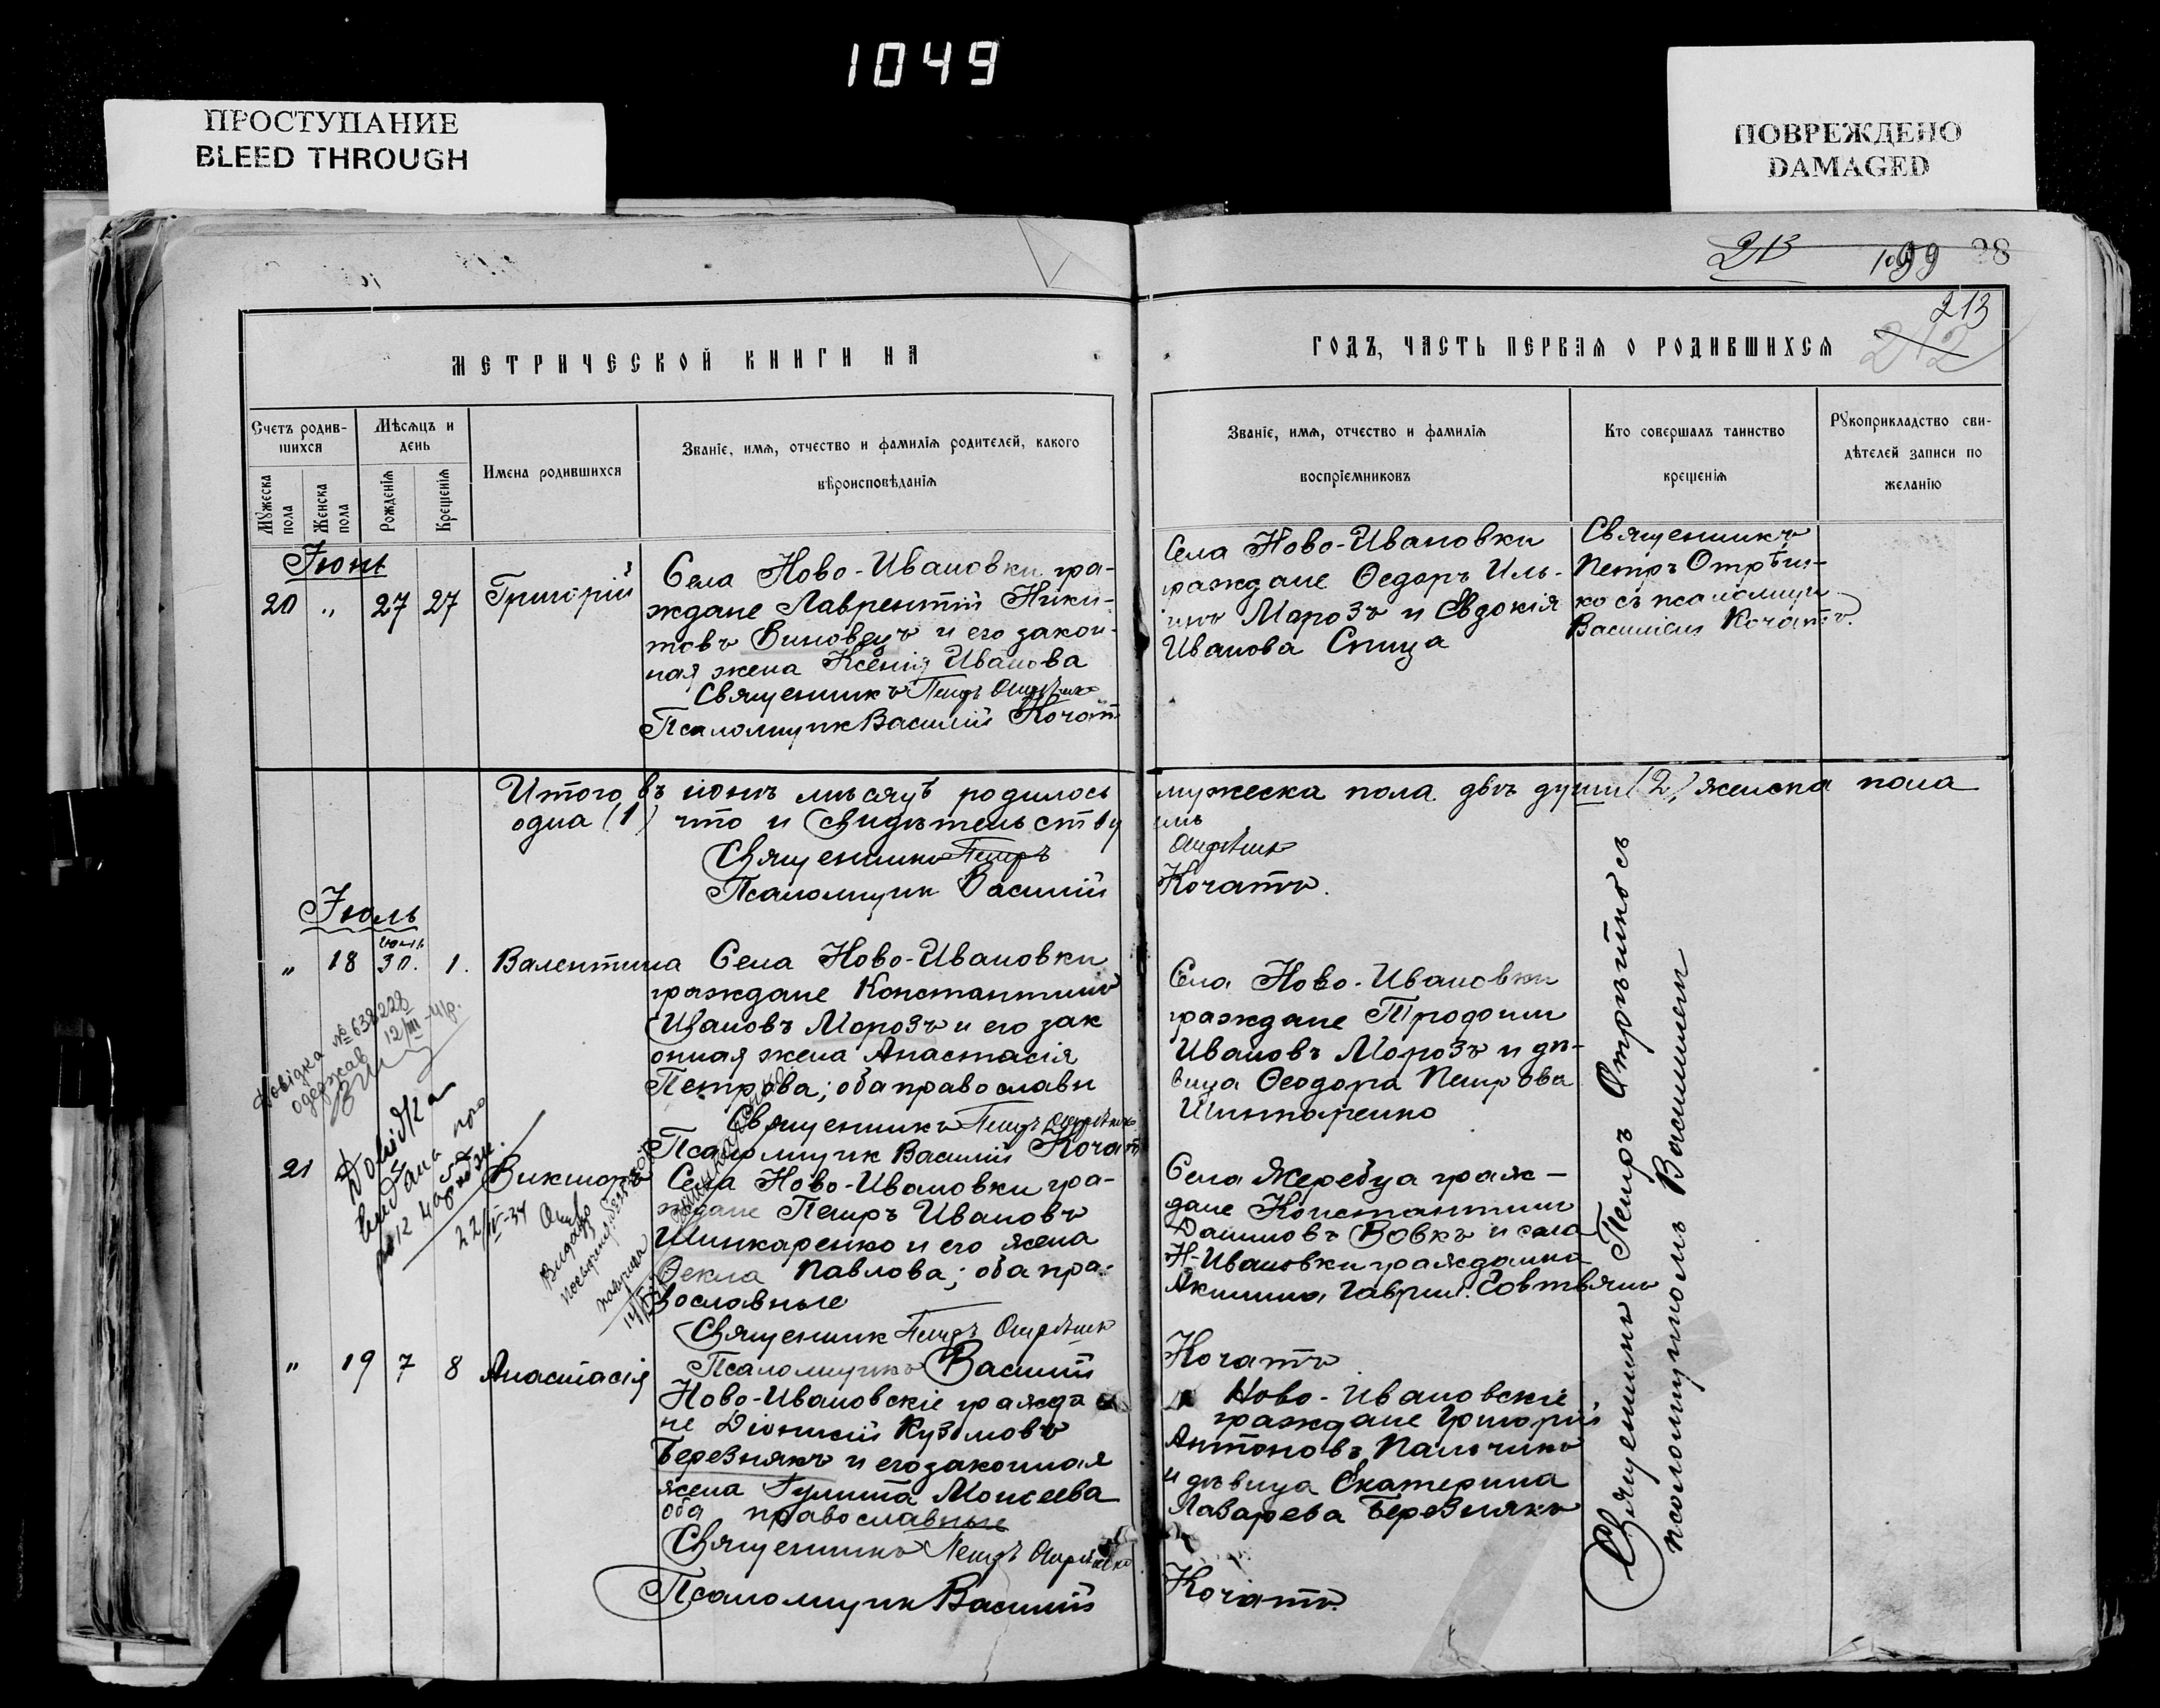 1049
ПРОСТУПАНИЕ
BLEED THROUGH
ПОВРЕЖДЕНО
DAMAGED
213
99 28
213
212
МЕТРИЧЕСКОЙ КНИГИ НА
ГОДЪ, ЧАСТЬ ПЕРВАЯ О РОДИВШИХСЯ
Счетъ родив-
шихся
Мужеска пола
Женска пола
Мѣсяцъ и
день
Рожденія
Крещенія
Имена родившихся
Званіе, имя, отчество и фамилія родителей, какого
вѣроисповѣданія
Званіе, имя, отчество и фамилія
воспріемниковъ
Кто совершалъ таинство
крещенія
Рукоприкладство сви-
дѣтелей записи по
желанію
Іюнь
20 „ 27 27 Григорій
Села Ново-Ивановки гра-
ждане Лаврентій Ники-
товъ Виновецъ и его закон-
ная жена Ксенія Иванова
Священникъ Петръ Отрѣшко
Псаломщик Василій Кочатъ
Села Ново-Ивановки
граждане Ѳедоръ Иль-
инъ Морозъ и Евдокія
Иванова Спица
Священникъ
Петръ Отрѣш-
ко съ псаломщик
Василіем Кочатъ.
Итого въ іюнѣ мѣсяцѣ родилось мужеска пола двѣ души (2) женска пола
одна (1) что и свидѣтельству емъ
Священникъ Петръ Отрѣшко
Псаломщик Василій Кочатъ.
Іюль
„ 18 іюнь 30. 1. Валентина
Села Ново-Ивановки
граждане Константинъ
Ивановъ Морозъ и его зак
онная жена Анастасія
Петрова; оба православн
Священникъ Петръ Отрѣшко
Псаломщик Василій Кочатъ
Села Ново-Ивановки
граждане
Ивановъ Морозъ и дѣ-
вица Ѳеодора Петрова
Шинкаренко
Довідка № 638228
одержав 12/III-41р.
Довідка
видана
22/IV-34
21 Викторъ
Села Ново-Ивановки гра-
ждане Петръ Ивановъ
Шинкаренко и его жена
Ѳекла Павлова; оба пра-
вославные
Священник Петръ Отрѣшко
Псаломщикъ Василій Кочатъ
Села Жеребца граж-
дане Константин
Даниловъ Вовкъ и села
Н-Ивановки гражданка
Акилина Гаврил. Говтвянъ
„ 19 7 8 Анастасія
Ново-Ивановскіе гражда
не Діонисій Кузмовъ
Березнякъ и его законная
жена Гулита Моисеева
оба православные
Священникъ Петръ Отрѣшко
Псаломщик Василій Кочатъ.
Ново-Ивановскіе
граждане Григорій
Антоновъ Пальчикъ
и дѣвица Екатерина
Лазарева Березнякъ
Священникъ Петръ Отрѣшко съ
псаломщикомъ Василіемъ